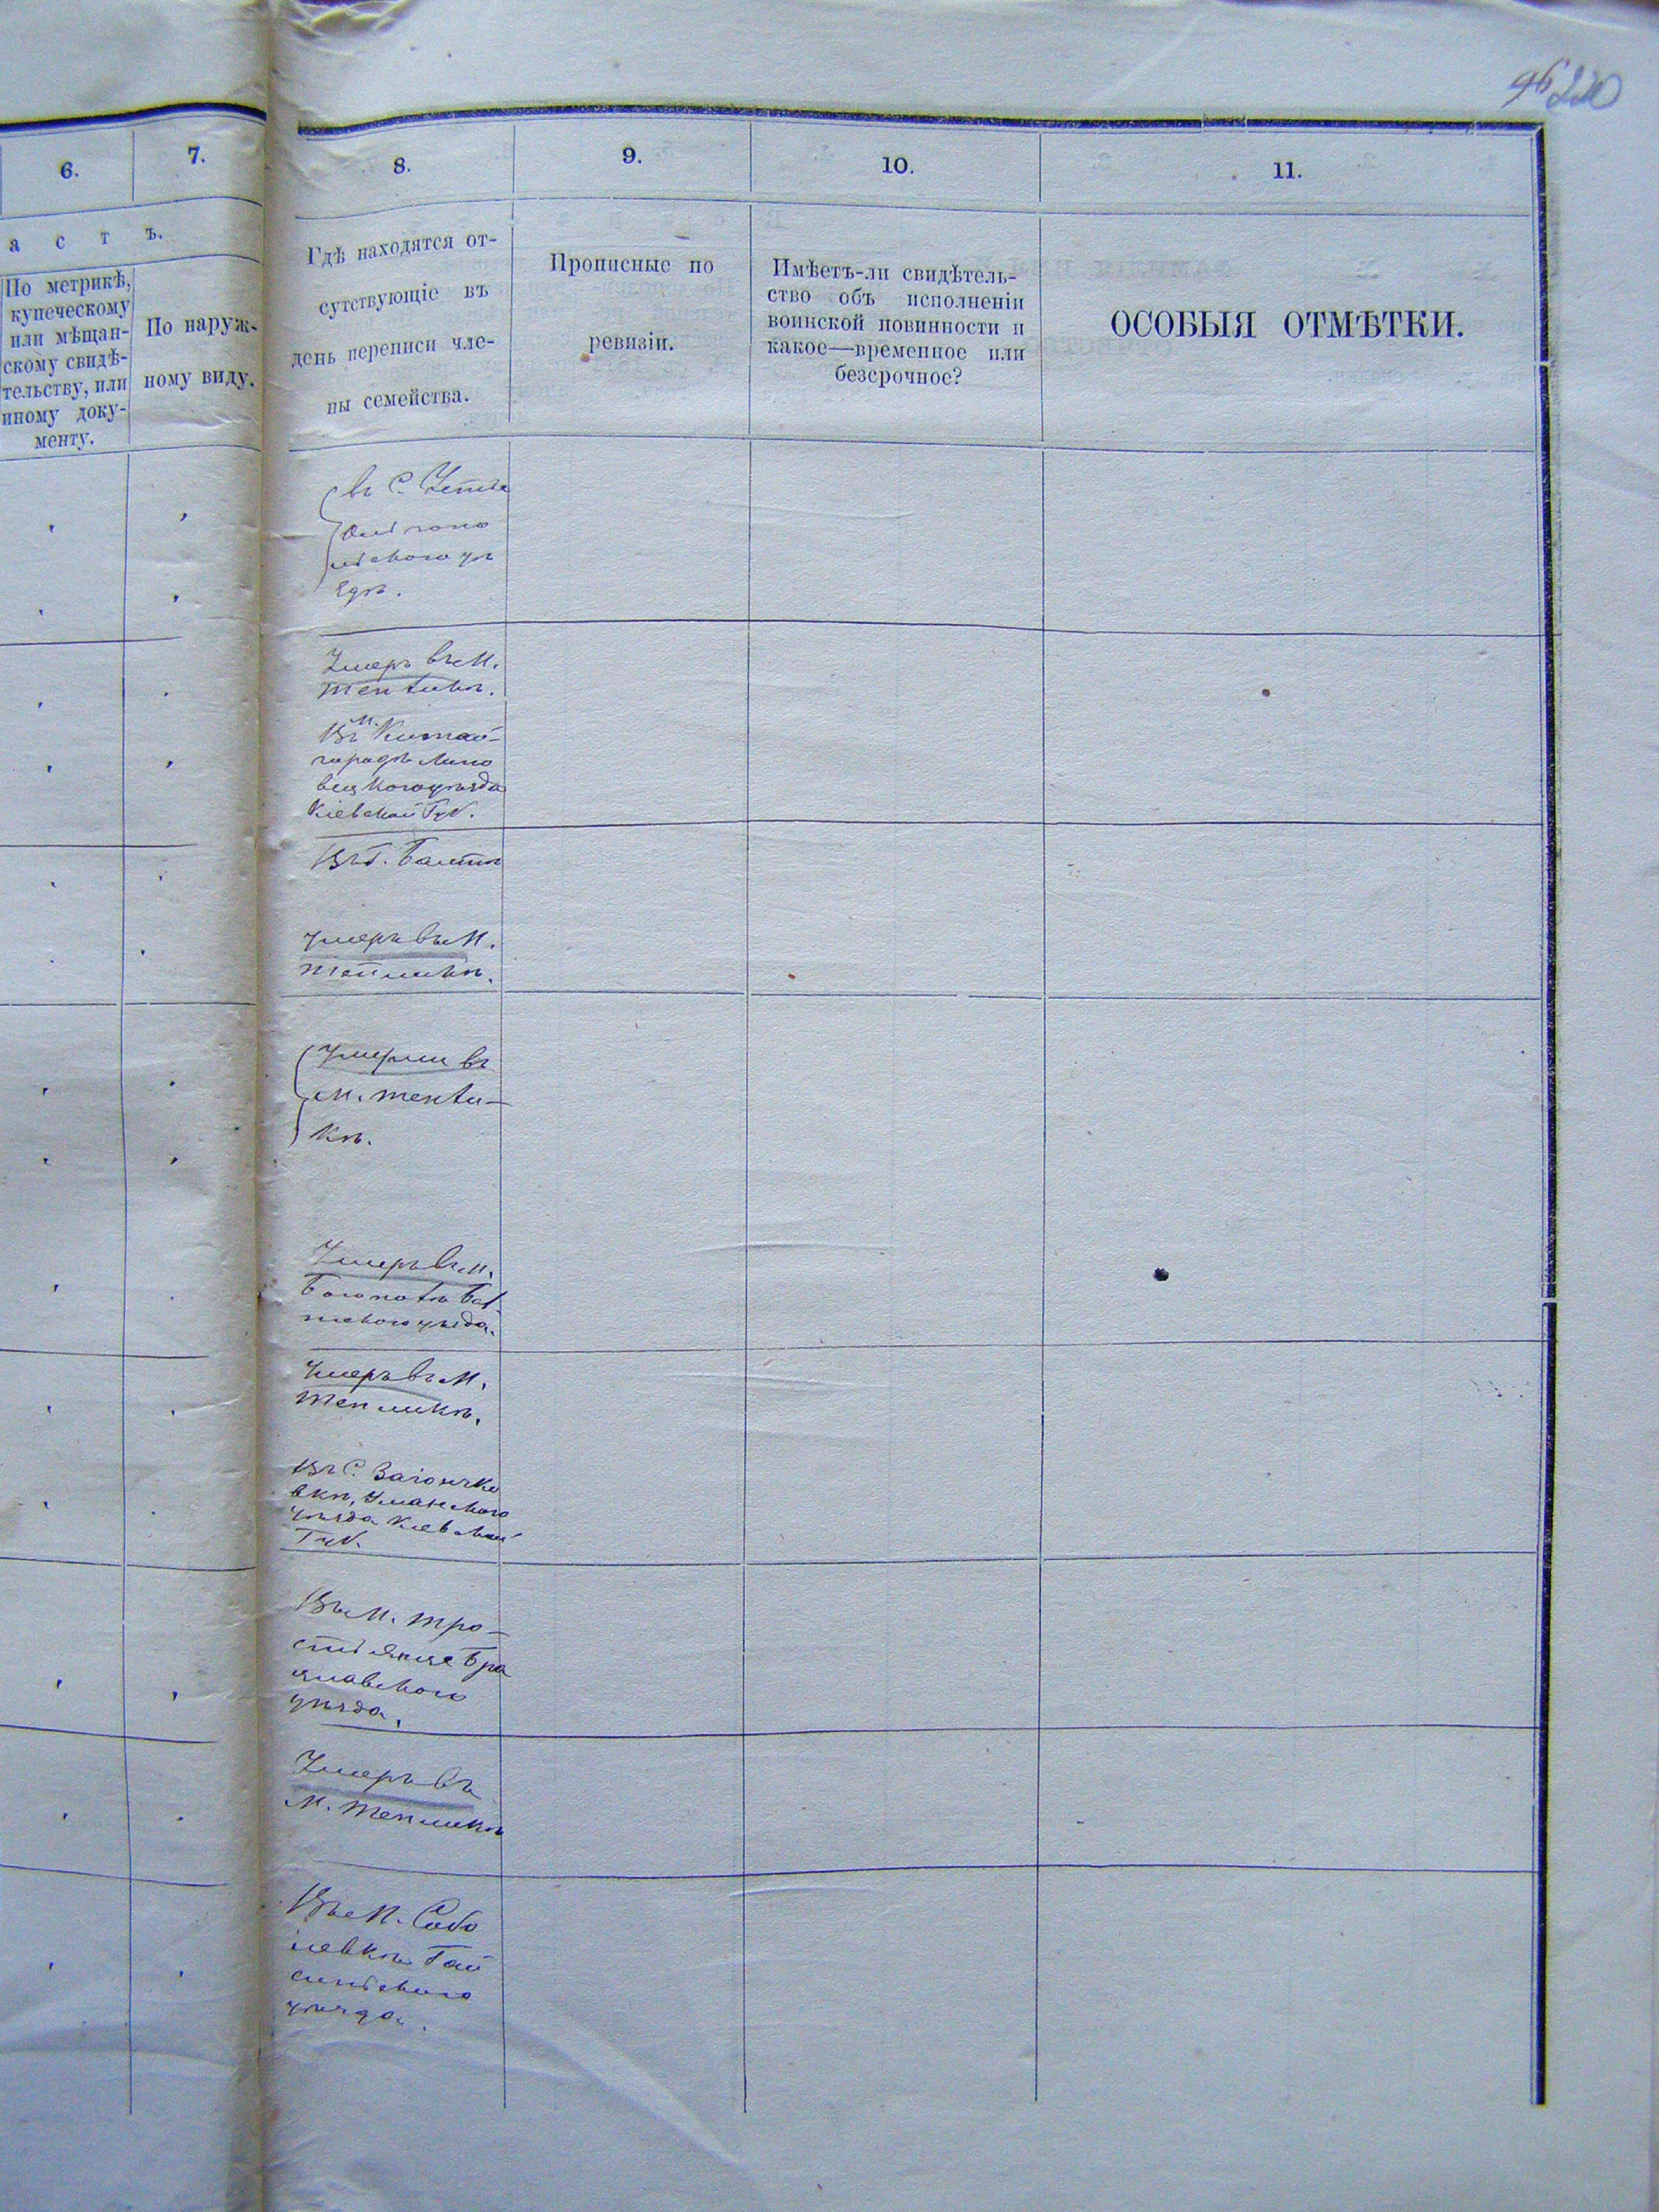 96 220
6.
7.
8.
9.
10.
11.
а с т ъ.
По метрикѣ,
купеческому
или мѣщан-
скому свидѣ-
тельству, или
иному доку-
менту.
По наруж-
ному виду.
Гдѣ находятся от-
сутствующіе въ
день переписи чле-
ны семейства.
Прописные по
ревизіи.
Имѣетъ-ли свидѣтель-
ство объ исполненіи
воинской повинности и
какое—временное или
безсрочное?
ОСОБЫЯ ОТМѢТКИ.
въ С.
Умеръ въ М.
Тепликѣ.
Въ М. Китай-
городѣ Липо
вецкого уѣзда
Кіевской Губ.
Въ Г. Балтѣ
Умеръ въ М.
Тепликѣ.
Умерли въ
М. Тепли-
кѣ.
Умеръ въ М.
Богополѣ Бал
тского уѣзда.
Умеръ въ М.
Тепликѣ.
Въ С.
вкѣ, Уманского
уѣзда Кіевской
Губ.
Въ М. Тро-
стянце Бра
цлавского
уѣзда.
Умеръ въ
М. Тепликѣ
Въ М. Собо
левкѣ Гай
синского
уѣзда.